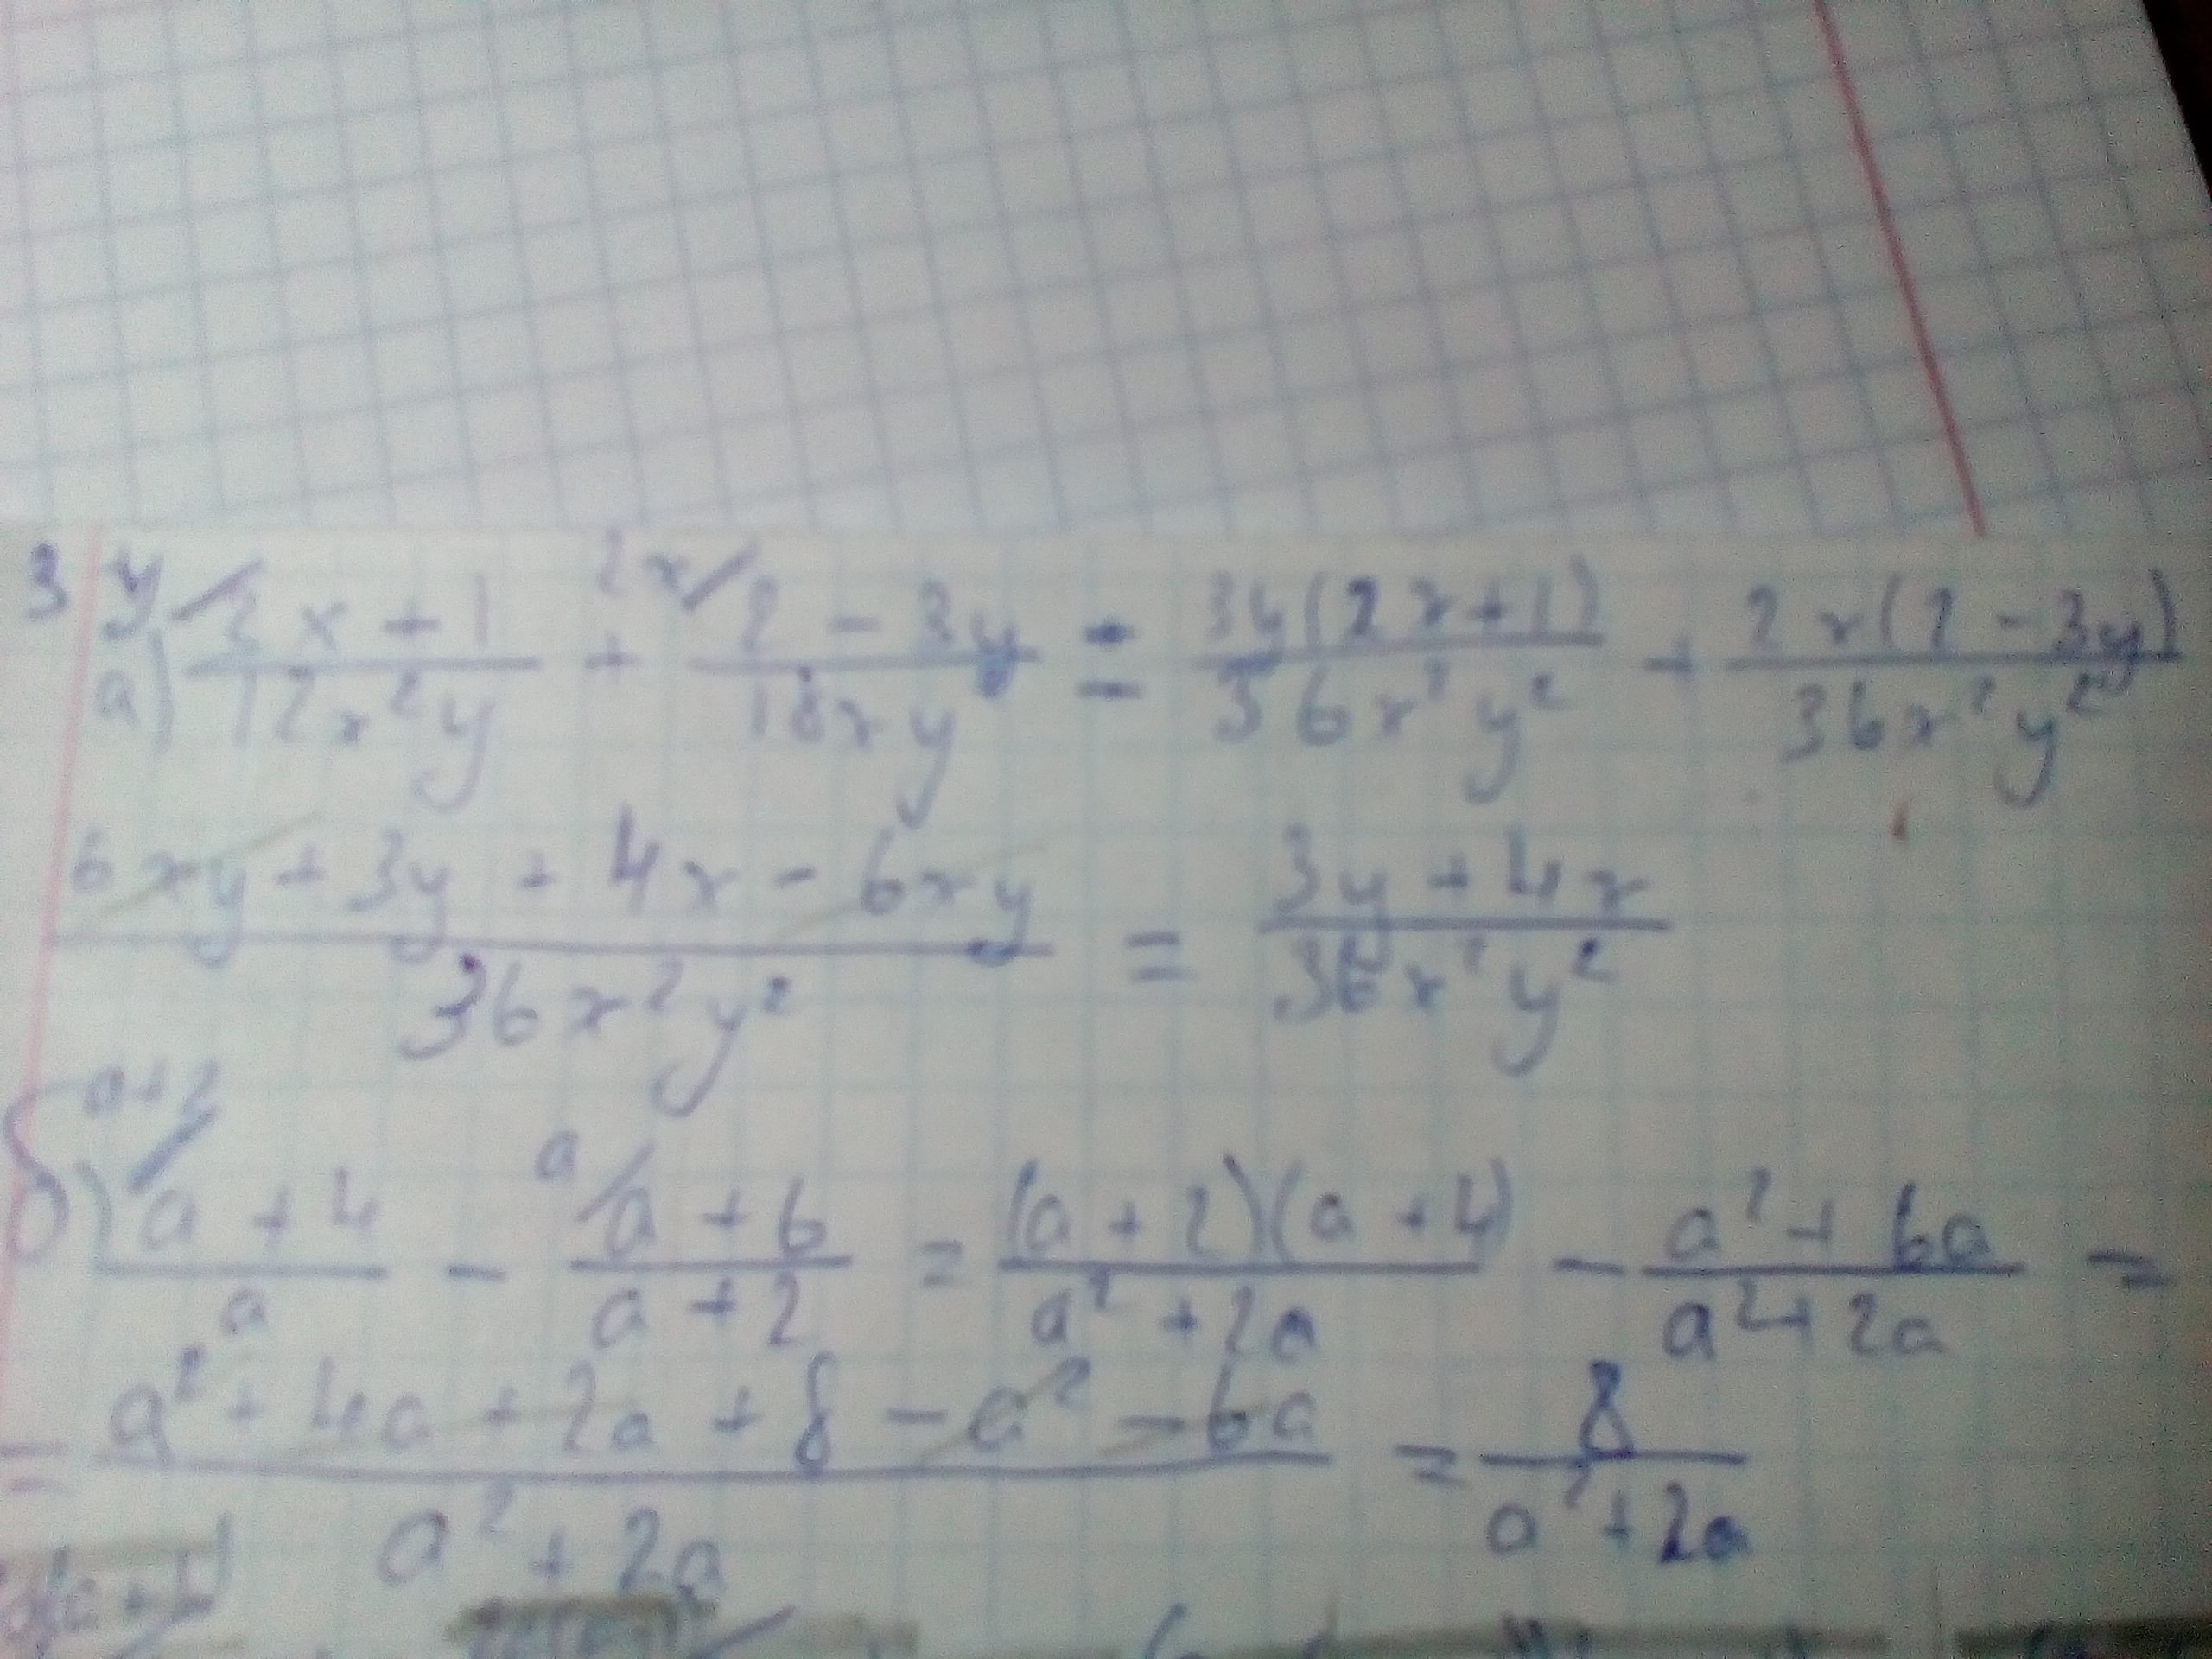 а) 3y/ (2x + 1)/(12x²y) + 2x/ (2 - 3y)/(18xy²) = 3y(2x+1)/(36x²y²) + 2x(2 - 3y)/(36x²y²)
(6xy + 3y + 4x - 6xy)/(36x²y²) = (3y + 4x)/(36x²y²)
б) a+2/ (a + 4)/a - a/ (a + 6)/(a + 2) = (a + 2)(a + 4)/(a² + 2a) - (a² + 6a)/(a² + 2a) =
= (a² + 4a + 2a + 8 - a² - 6a)/(a² + 2a) = 8/(a² + 2a)